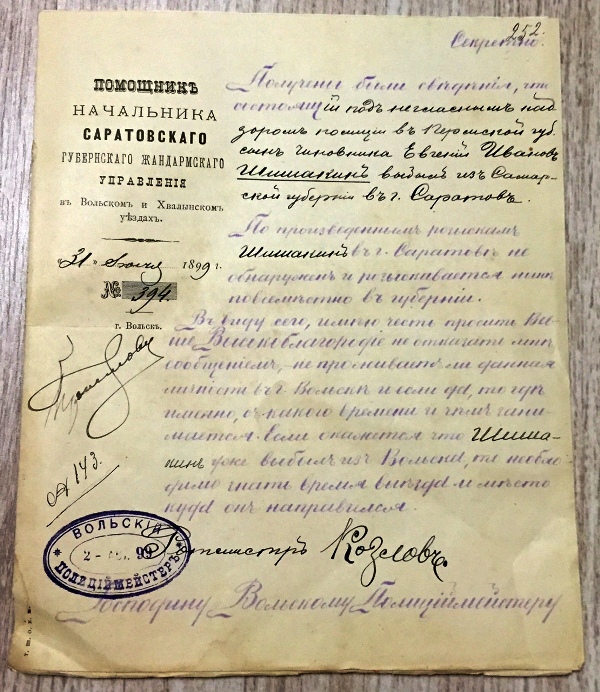 252.
Секретно.
ПОМОЩНИКЪ
НАЧАЛЬНИКА
САРАТОВСКАГО
ГУБЕРНСКАГО ЖАНДАРМСКАГО
УПРАВЛЕНІЯ
въ Вольскомъ и Хвалынскомъ
уѣздахъ.
„31“ Іюля 1899 г.
№ 394.
г. Вольскъ.
№ 143.
Получены были свѣдѣнія, что
состоящій подъ негласнымъ над-
зоромъ полиціи въ Пермской губ.
сынъ чиновника Евгеній Ивановъ
Шишакинъ выбылъ изъ Самар-
ской губерніи въ г. Саратовъ.
По произведеннымъ розыскамъ
Шишакинъ въ г. Саратовѣ не
обнаруженъ и розыскивается нынѣ
повсемѣстно въ губерніи.
Въ виду сего, имѣю честь просить Ва-
ше Высокоблагородіе не отказать мнѣ
сообщеніемъ, не проживаетъ ли данная
личность въ г. Вольскѣ и если да, то гдѣ
именно, съ какого времени и чѣмъ зани-
мается. Если окажется что Шиша-
кинъ уже выбылъ изъ Вольска, то необхо-
димо знать время выѣзда и мѣсто
куда онъ направился.
Ротмистръ Козловъ.
ВОЛЬСКІЙ
2 - АВГ. 99
ПОЛИЦІЙМЕЙСТЕРЪ
Господину Вольскому Полиціймейстеру